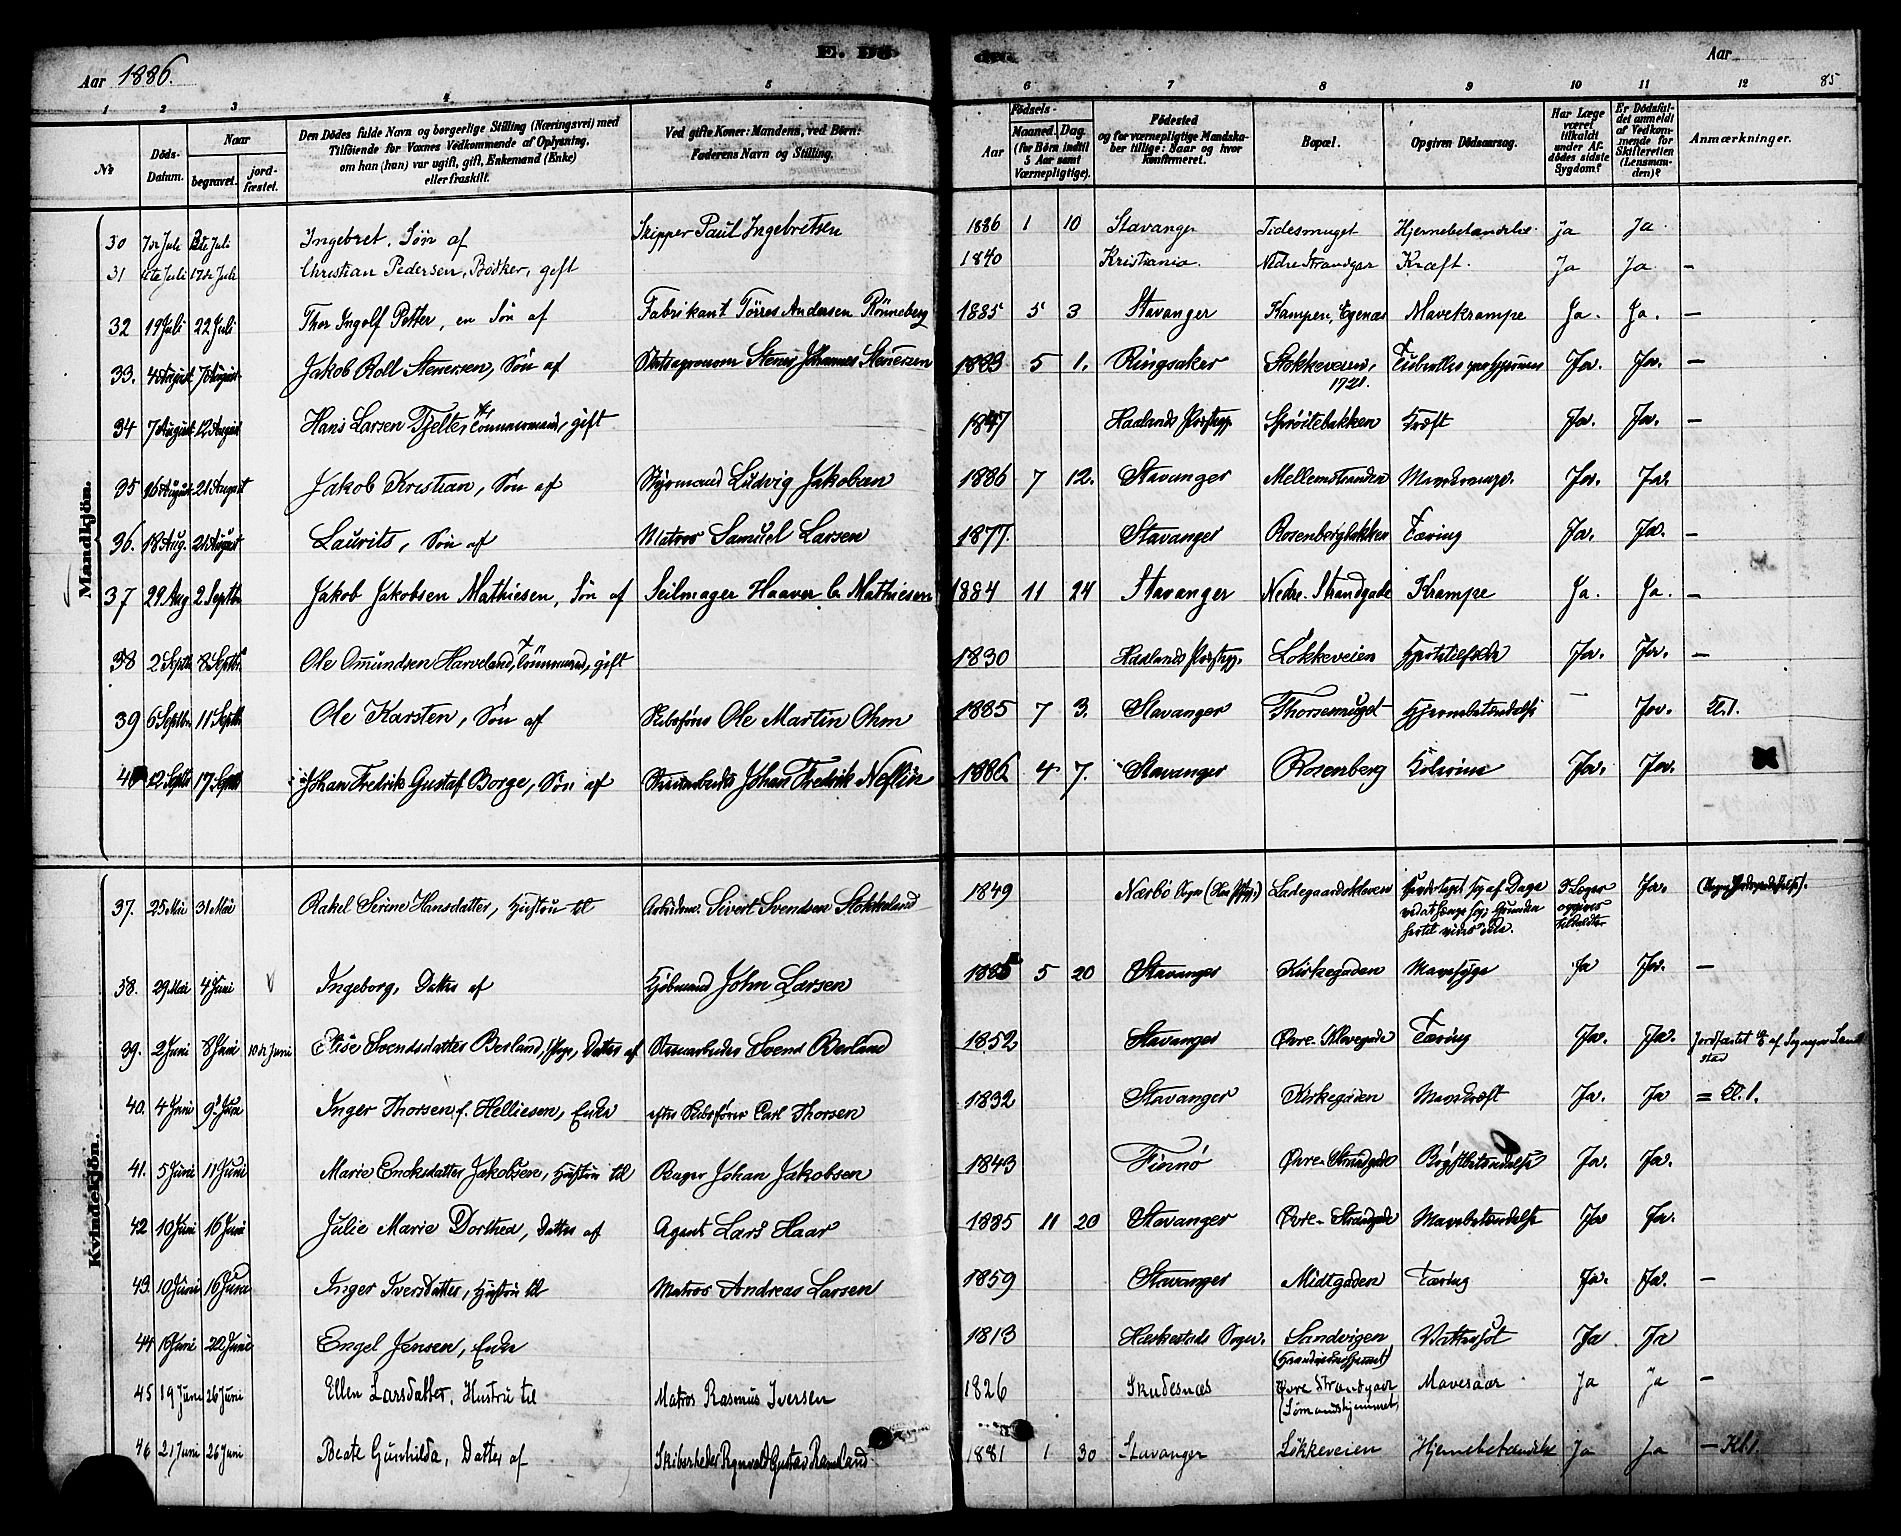 E. Dö- den.
Aar 1886. Aar 85
1 2 3 4 5 6 7 8 9 10 11 12
№ Döds-Datum. Naar begravet. jord-fæstet. Den Dödes fulde Navn og borgerlige Stilling (Næringsvei) med Tilföiende for Voxnes Vedkommende af Oplysning, om han (hun) var ugift, gift, Enkemand (Enke) eller fraskilt. Ved gifte Koner: Mandens, ved Börn: Faderens Navn og Stilling. Födsels- Aar Maaned. Dag. (for Börn indtil 5 Aar samt Værnepligtige). Födested og for værnepligtige Mandskaber tillige: Naar og hvor konfirmeret. Bopæl. Opgiven Dödsaarsag. Har Læge været tilkaldt under Afdödes sidste Sygdom? Er Dödsfaldet anmeldt af Vedkommende for Skifteretten (Lensmanden)? Anmærkninger.
Mandkjön.
30 7de Juli 12te Juli Ingebret, Søn af Skipper Paul Ingebretsen 1886 1 10 Stavanger Tidesmuget Hjernebetændelse Ja Ja
31 17de Juli Christian Pedersen, Bødker, gift 1840 Kristiania Nedre Strandgar Kræft Ja Ja —
32 19 Juli 22 Juli Thor Ingolf Petter, en Søn af Fabrikant Tørres Andersen Rønneberg 1885 5 3 Stavanger Kampen, Egenæs Mavekrampe Ja. Ja. —
33. 4 August 7 August Jakob Roll Stenersen, Søn af Johannes Stenersen 1883 5 1. Ringsaker Stokkeveien, 1721. Ja. Ja. —
34 7 August 12 August Hans Larsen Tjelte, Tømmermand, gift 1847 Haalands Præstegj. Sprøitebakken Kræft Ja. Ja. —
35 16 August 21 August Jakob Kristian, Søn af Styrmand Ludvig Jakobsen 1886 7 12. Stavanger Mellemstranden Mavekrampe. Ja. Ja.
36. 18 Aug. 21 August Laurits, Søn af Matros Samuel Larsen 1877. Stavanger Rosenbergbakken Tæring Ja. Ja. —
37 29 Aug 2 Septbr Jakob Jakobsen Mathiesen, Søn af Seilmager Haaver C. Mathiesen 1884 11 24 Stavanger Nedre. Strandgade Krampe Ja. Ja. —
38 2 Septb 8 Septb. Ole Omundsen Harveland, Tømmermand, gift 1830 Haalands Præstegj. Løkkeveien Ja. Ja. —
39 6 Septbr 11 Septb Ole Karsten, Søn af Skibsfører Ole Martin Ohm 1885 7 3. Stavanger Thorsemuget Hjernebetændelse — Ja. Kl. 1.
40 12 Septb 17 Septb Johan Fredrik Gustaf Borge, Søn af Johan Fredrik Neflin 1886 4 7. Stavanger Rosenberg Kolerine Ja. Ja.
Kvindekjön.
37. 25 Mai 31 Mai Rakel Serine Hansdatter, Hustru til Arbeidsm. Sivert Svendsen Stokkeland 1849 Nærbø Sogn Ladegaardskleven af Dage ved at hænge sig, Grunden hertil vides ikke. 3 Læger opgives tilkaldte Ja.
38. 29 Mai 4 Juni Ingeborg, Datter af Kjøbmand John Larsen 5 20 Stavanger Kirkegaden Mavesyge Ja Ja. —
39. 2 Juni 8 Juni 10de Juni Elise Svendsdatter Berland, Pige, Datter af Svend Berland 1852 Stavanger Øvre Kleivegade Tæring Ja. Ja. Jordfæstet
40. 4 Juni 9. Juni Inger Thorsen f. Helliesen, Enke efter Skibsfører Carl Thorsen 1832 Stavanger Kirkegaden Mavekræft Ja. Ja = Kl. 1.
41. 5 Juni 11 Juni Marie Enoksdatter Jakobsen, Hustru til Bager Johan Jakobsen 1843 Finnø Øvre Strandgade Brystbetændelse Ja. Ja.
42 10 Juni 16 Juni Julie Marie Dorthea, Datter af Agent Lars Haar 1885 11 20 Stavanger Øvre Strandgade Mavebetændelse Ja Ja.
43. 10 Juni 16 Juni Inger Iversdatter, Hustru til Matros Andreas Larsen 1859 Stavanger Midtgaden Tæring Ja. Ja. —
44 16 Juni 22 Juni Engel Jensen, Enke 1813 Hærkestads Sogn. Sandvigen Vattersot Ja Ja
45 19 Juni 26 Juni Ellen Larsdatter, Hustru til Matros Rasmus Iversen 1826 Skudesnæs Øvre Strandgade (Sømandshjemmet) Mavesaar Ja Ja —
46 21 Juni 26 Juni Beate Gunhilda, Datter af Skibsrheder Rgnvald Gustav Ramsland 1881 1 30 Stavanger Løkkeveien Hjernebetændelse Ja Ja — Kl. 1.